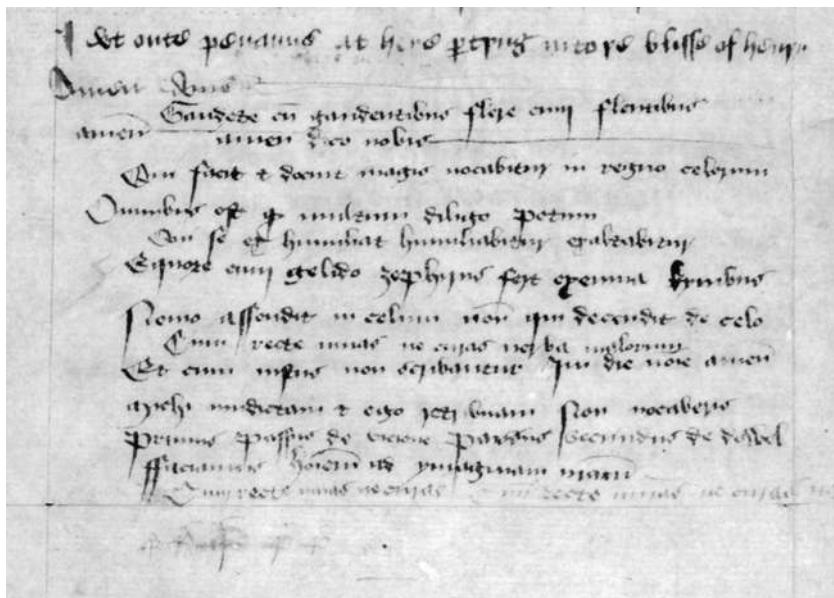 wt oute penauns at here ptyng into ye blisse of heuen
Amen
Gaudete cū gaudentibus flere cum flentibus
amen amen dico uobis
Qui facit & docuit magis uocabitur in regno celorum
Omnibus est q multum diligo petrum
Qui se humiliat humiliabitur exaltabitur
Equore cum gelido zephyrus fert exennia kymbus
Nemo assendit in celum nisi qui decendit de celo
Cum recte uiuas ne cures uerba malorum
Et cum non scribantur In die noie amen
michi uindictam & ego retribuam Non uocaberis
Primus Passus de visione Secundus de dowel
ffaciamus hoiem ad ymaginem
Cum recte uiuas ne cures Cum recte uiuas ne cures